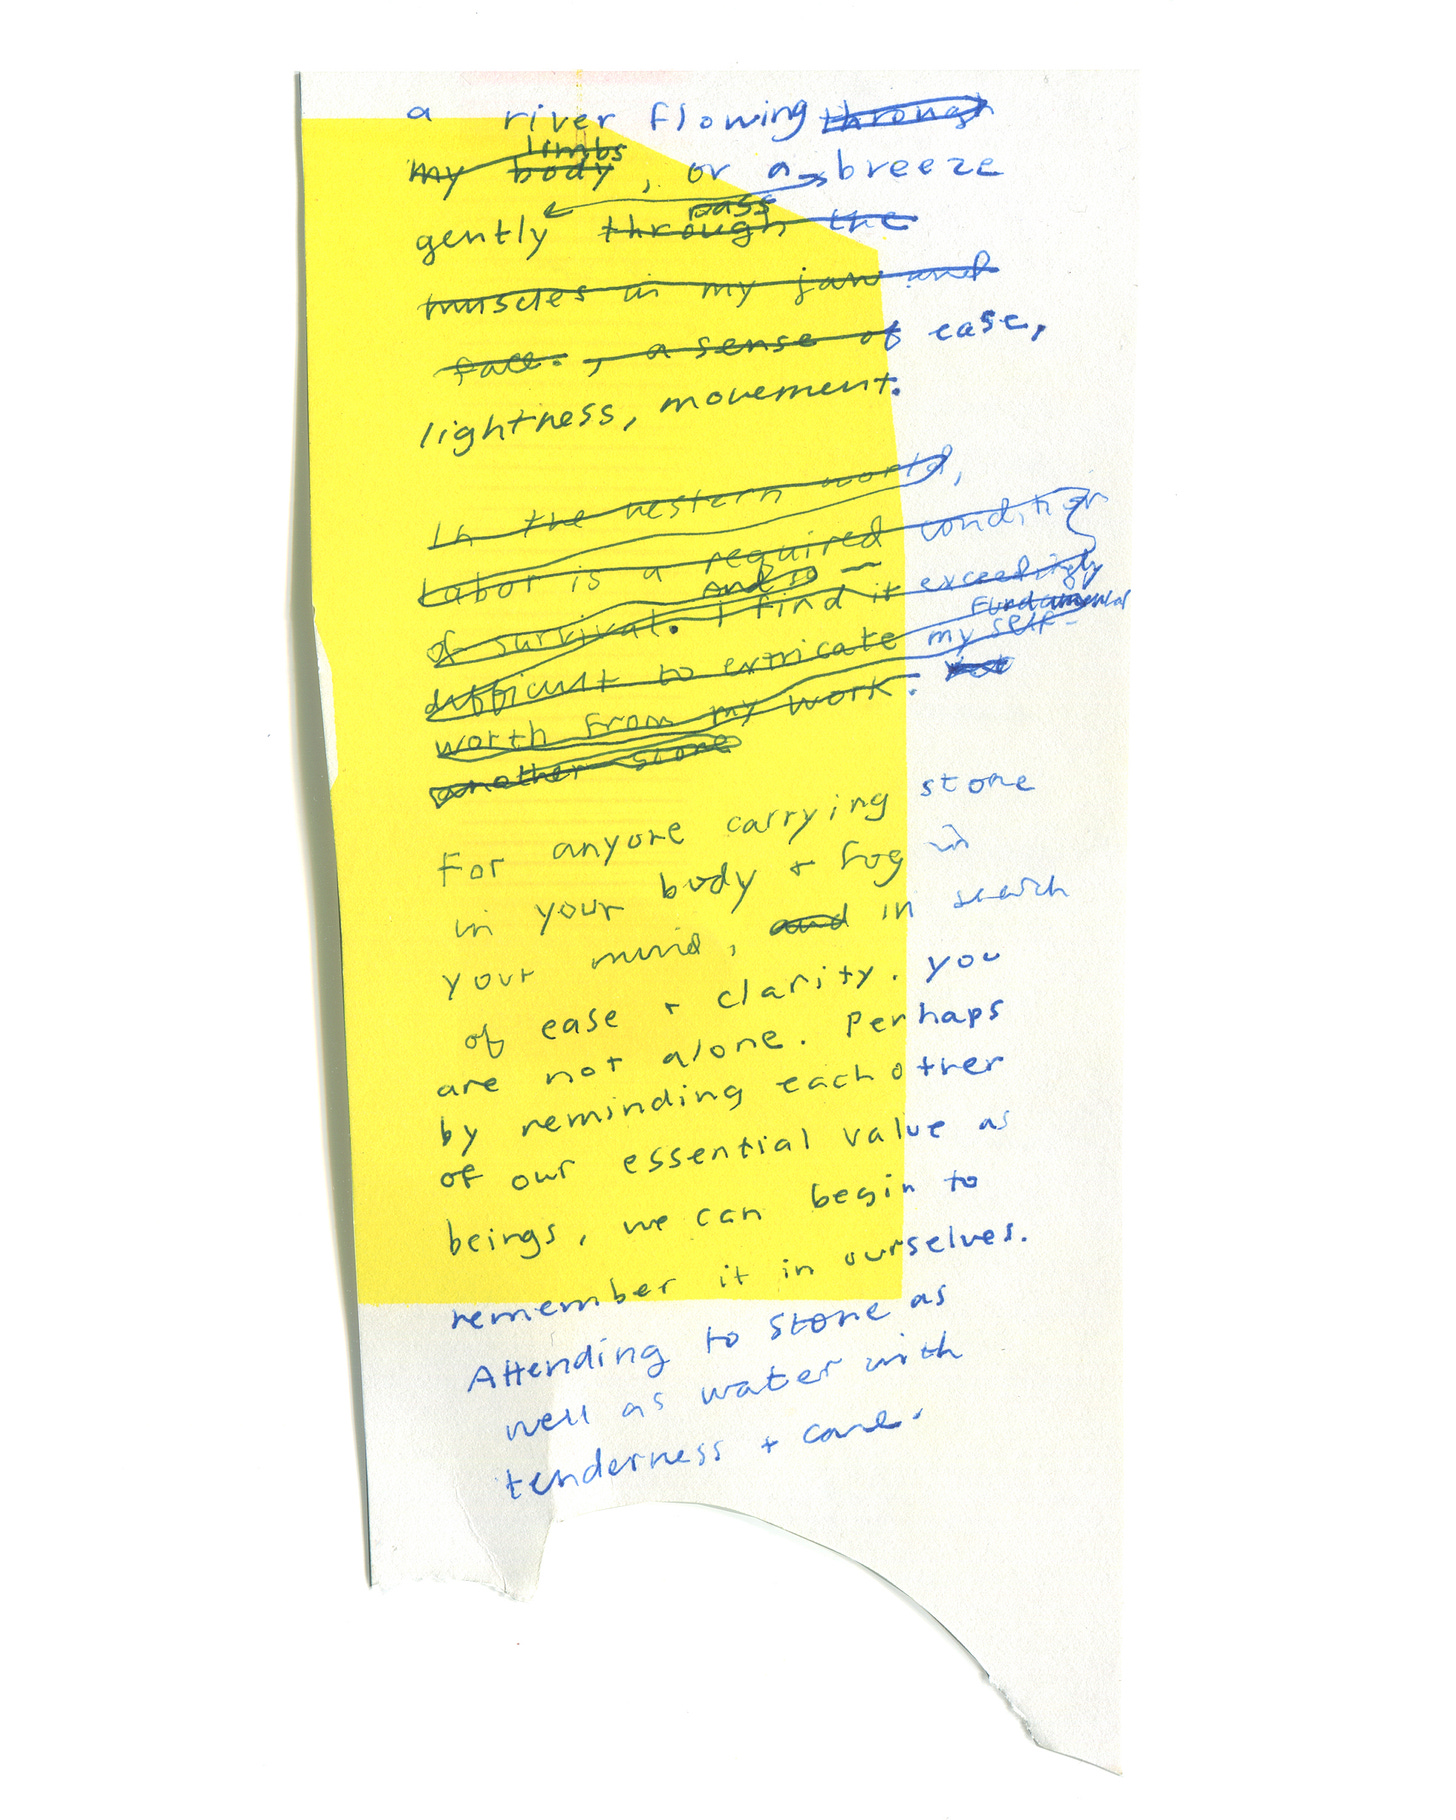 a river flowing through
limbs
my body, or a breeze
pass
gently through the
muscles in my jaw and
face., a sense of ease,
lightness, movement.
In the western world,
Labor is a required condition
And so
of survival. I find it exceedingly
Fundamental
difficult to extricate my self-
worth from my work.
another stone
For anyone carrying stone
in your body + fog in
your mind, and in search
of ease + clarity. you
are not alone. Perhaps
by reminding each other
of our essential value as
beings, we can begin to
remember it in ourselves.
Attending to stone as
well as water with
tenderness + care.